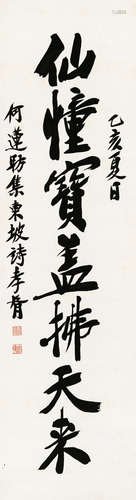 乙亥夏日
仙幢寶盖拂天来
何蓮舫集東坡詩孝胥